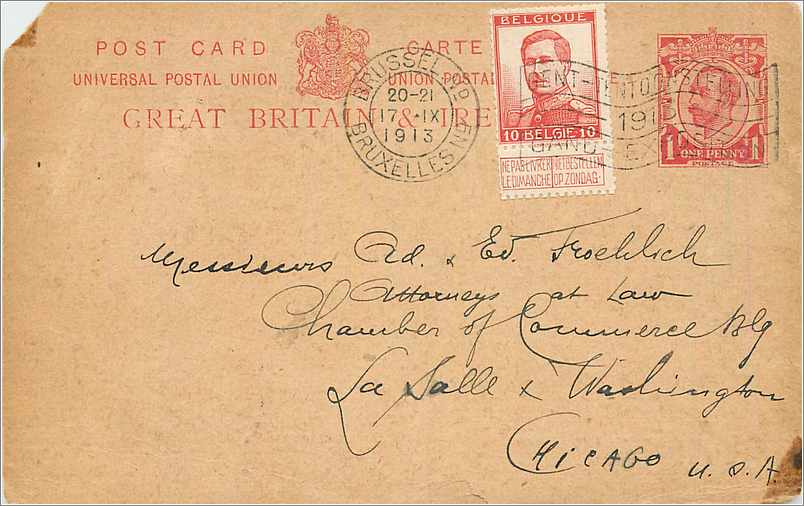 POST CARD CARTE
UNIVERSAL POSTAL UNION UNION POSTAL
GREAT BRITAIN & IRE
BRUSSEL
20-21
17-IX
1913
BRUXELLES
BELGIQUE
10 BELGIË 10
NE PAS LIVRER NIET BESTELLEN
LE DIMANCHE OP ZONDAG.
1913
GAND EX
1 ONE PENNY 1
POSTAGE
Messieurs Ad. & Ed. Froehlich
Attorneys at Law
Chamber of Commerce Blg
La Salle & Washington
CHICAGO U.S.A.